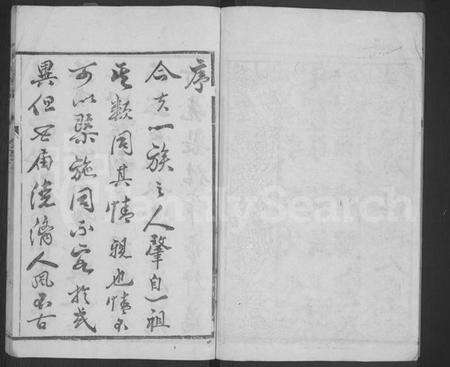 序
合其一族之人肇自一祖
其類同其情親也情不
可以槩施同不容於或
異但世届澆漓人風不古
FamilySearch